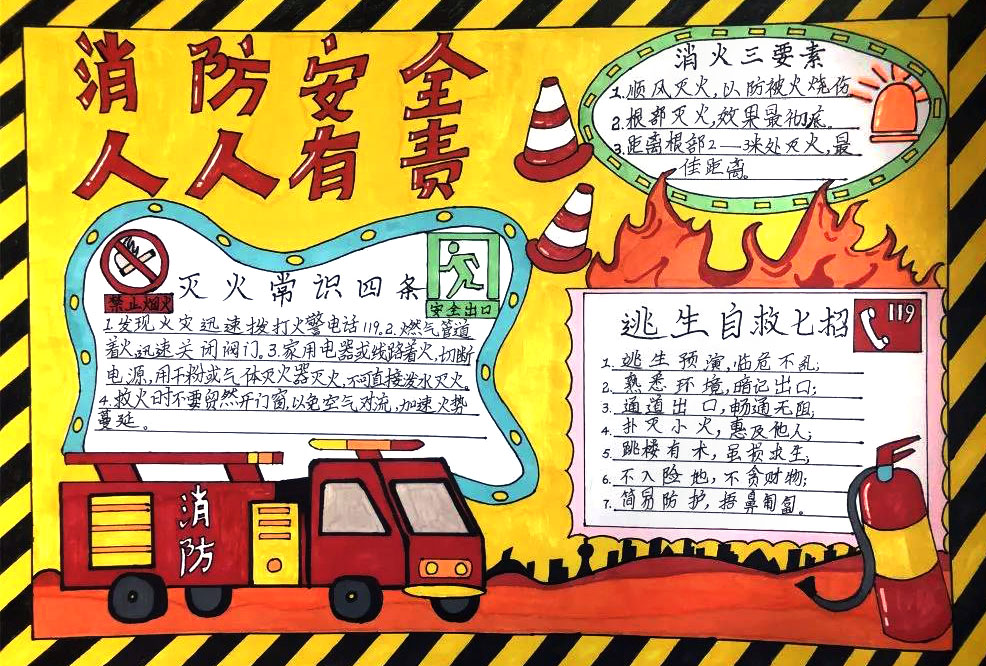 消防安全
人人有责
消火三要素
1.顺风灭火,以防被火烧伤
2.根部灭火,效果最彻底。
3.距离根部2—3米处灭火,最
佳距离。
禁止烟火
灭火常识四条
安全出口
1.发现火灾迅速拨打火警电话119。2.燃气管道
着火迅速关闭阀门。3.家用电器或线路着火,切断
电源,用干粉或气体灭火器灭火,不可直接泼水灭火。
4.救火时不要贸然开门窗,以免空气对流,加速火势
蔓延。
逃生自救七招
119
1.逃生预演,临危不乱;
2.熟悉环境,暗记出口;
3.通道出口,畅通无阻;
4.扑灭小火,惠及他人;
5.跳楼有术,虽损求生;
6.不入险地,不贪财物;
7.简易防护,捂鼻匍匐。
消防